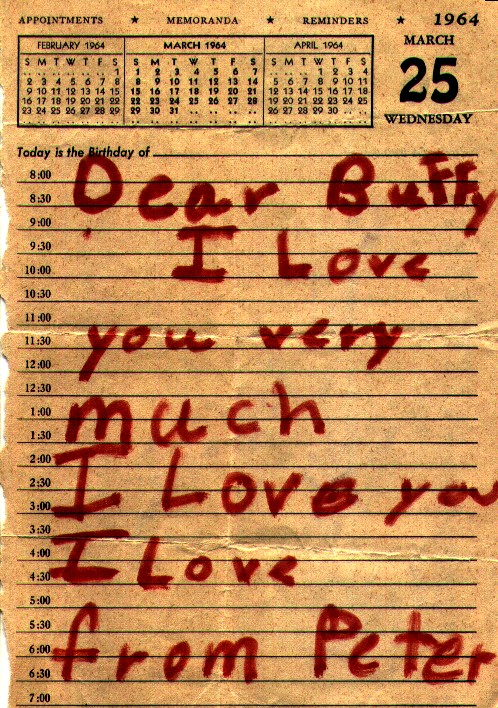 APPOINTMENTS ★ MEMORANDA ★ REMINDERS ★ 1964
FEBRUARY 1964
S M T W T F S
1
2 3 4 5 6 7 8
9 10 11 12 13 14 15
16 17 18 19 20 21 22
23 24 25 26 27 28 29
MARCH 1964
S M T W T F S
1 2 3 4 5 6 7
8 9 10 11 12 13 14
15 16 17 18 19 20 21
22 23 24 25 26 27 28
29 30 31
APRIL 1964
S M T W T F S
1 2 3 4
5 6 7 8 9 10 11
12 13 14 15 16 17 18
19 20 21 22 23 24 25
26 27 28 29 30
MARCH
25
WEDNESDAY
Today is the Birthday of
8:00
8:30
Dear Buffy
9:00
9:30
I Love
10:00
10:30
11:00
11:30
you very
12:00
12:30
1:00
much
1:30
2:00
2:30
I Love you
3:00
3:30
4:00
I Love
4:30
5:00
5:30
6:00
from Peter
6:30
7:00